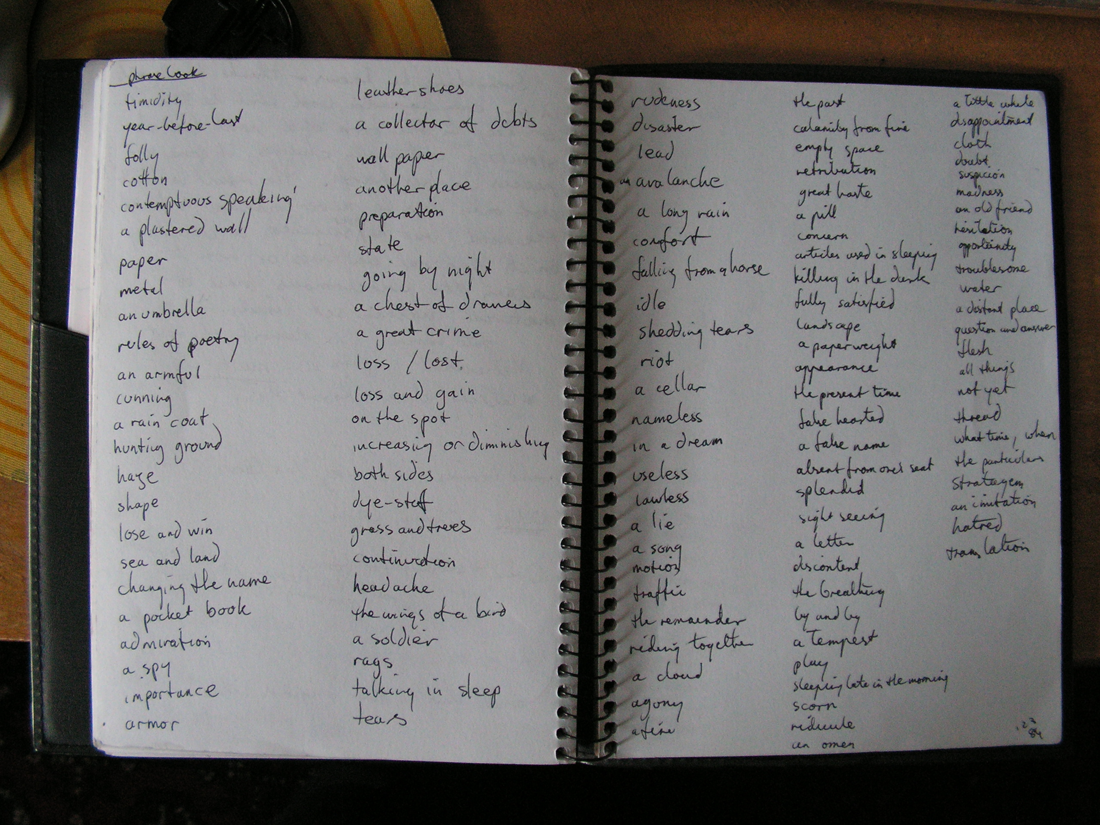 phrase book
timidity
year-before-last
folly
cotton
contemptuous speaking
a plastered wall
paper
metal
an umbrella
rules of poetry
an armful
cunning
a rain coat
hunting ground
haze
shape
lose and win
sea and land
changing the name
a pocket book
admiration
a spy
importance
armor
leather shoes
a collector of debts
wall paper
another place
preparation
state
going by night
a chest of drawers
a great crime
loss / lost
loss and gain
on the spot
increasing or diminishing
both sides
dye-stuff
grass and trees
continuation
headache
the wings of a bird
a soldier
rags
talking in sleep
tears
rudeness
disaster
lead
an avalanche
a long rain
comfort
falling from a horse
idle
shedding tears
riot
a cellar
nameless
in a dream
useless
lawless
a lie
a song
motion
traffic
the remainder
riding together
a cloud
agony
a fire
the past
calamity from fire
empty space
retribution
great haste
a pill
concern
articles used in sleeping
killing in the dark
fully satisfied
landscape
a paperweight
appearance
the present time
false hearted
a false name
absent from one's seat
splendid
sight seeing
a letter
discontent
the breathing
by and by
a tempest
play
sleeping late in the morning
scorn
ridicule
an omen
a little while
disappointment
cloth
doubt
suspicion
madness
an old friend
hesitation
opportunity
troublesome
water
a distant place
question and answer
flesh
all things
not yet
thread
what time, when
the particulars
stratagem
an imitation
hatred
translation